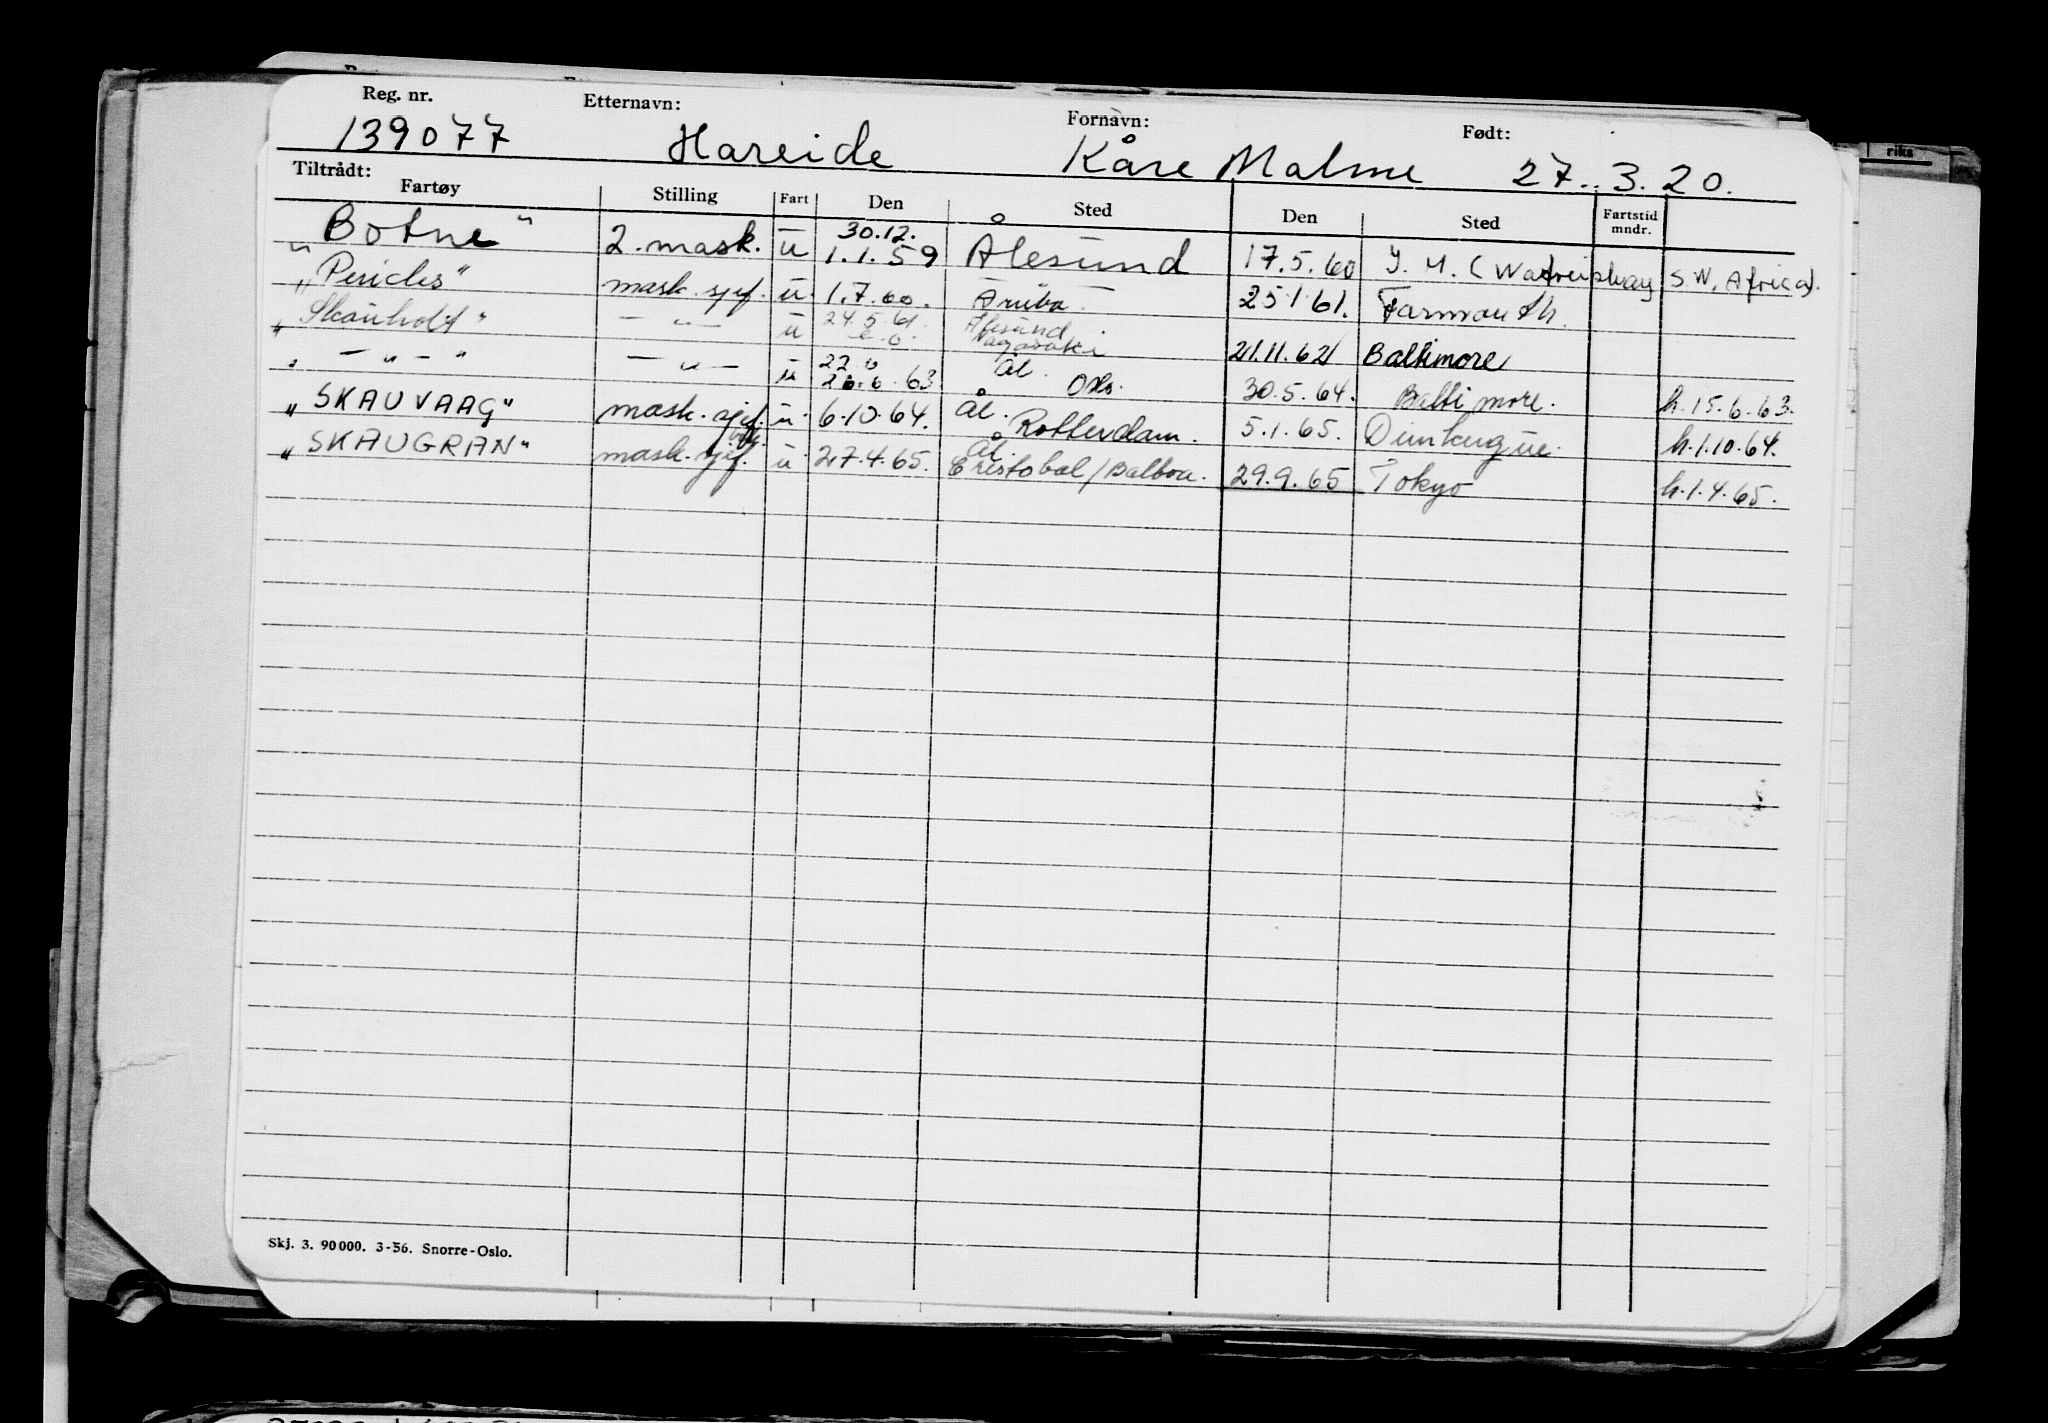 Reg. nr. Etternavn: Fornavn: Født:
139077 Hareide Kåre Malme 27. 3. 20.
Tiltrådt:
Fartøy Stilling Fart Den Sted Den Sted Fartstid mndr.
"Botne" 2. mask. u 30.12. 1.1.59 Ålesund 17.5.60 S.W. Africa).
"Pericles" mask. sjef. u. 1.7.60. Aruba 25.1.61.
"Skauholt" — " — u 24.5.61. Ålesund Nagasaki 21.11.62 Baltimore
" — " — " — " — u 22.6 26.6.63 Ål. Oslo. 30.5.64. Baltimore. h.15.6.63.
"SKAUVAAG" mask. sjef. u. 6.10.64. Ål. Rotterdam. 5.1.65. Dunkerque. h.1.10.64.
"SKAUGRAN" mask. sjef. u. 27.4.65. Ål. Cristobal/Balboa. 29.9.65 Tokyo h.1.4.65.
Skj. 3. 90000. 3-56. Snorre-Oslo.
riks